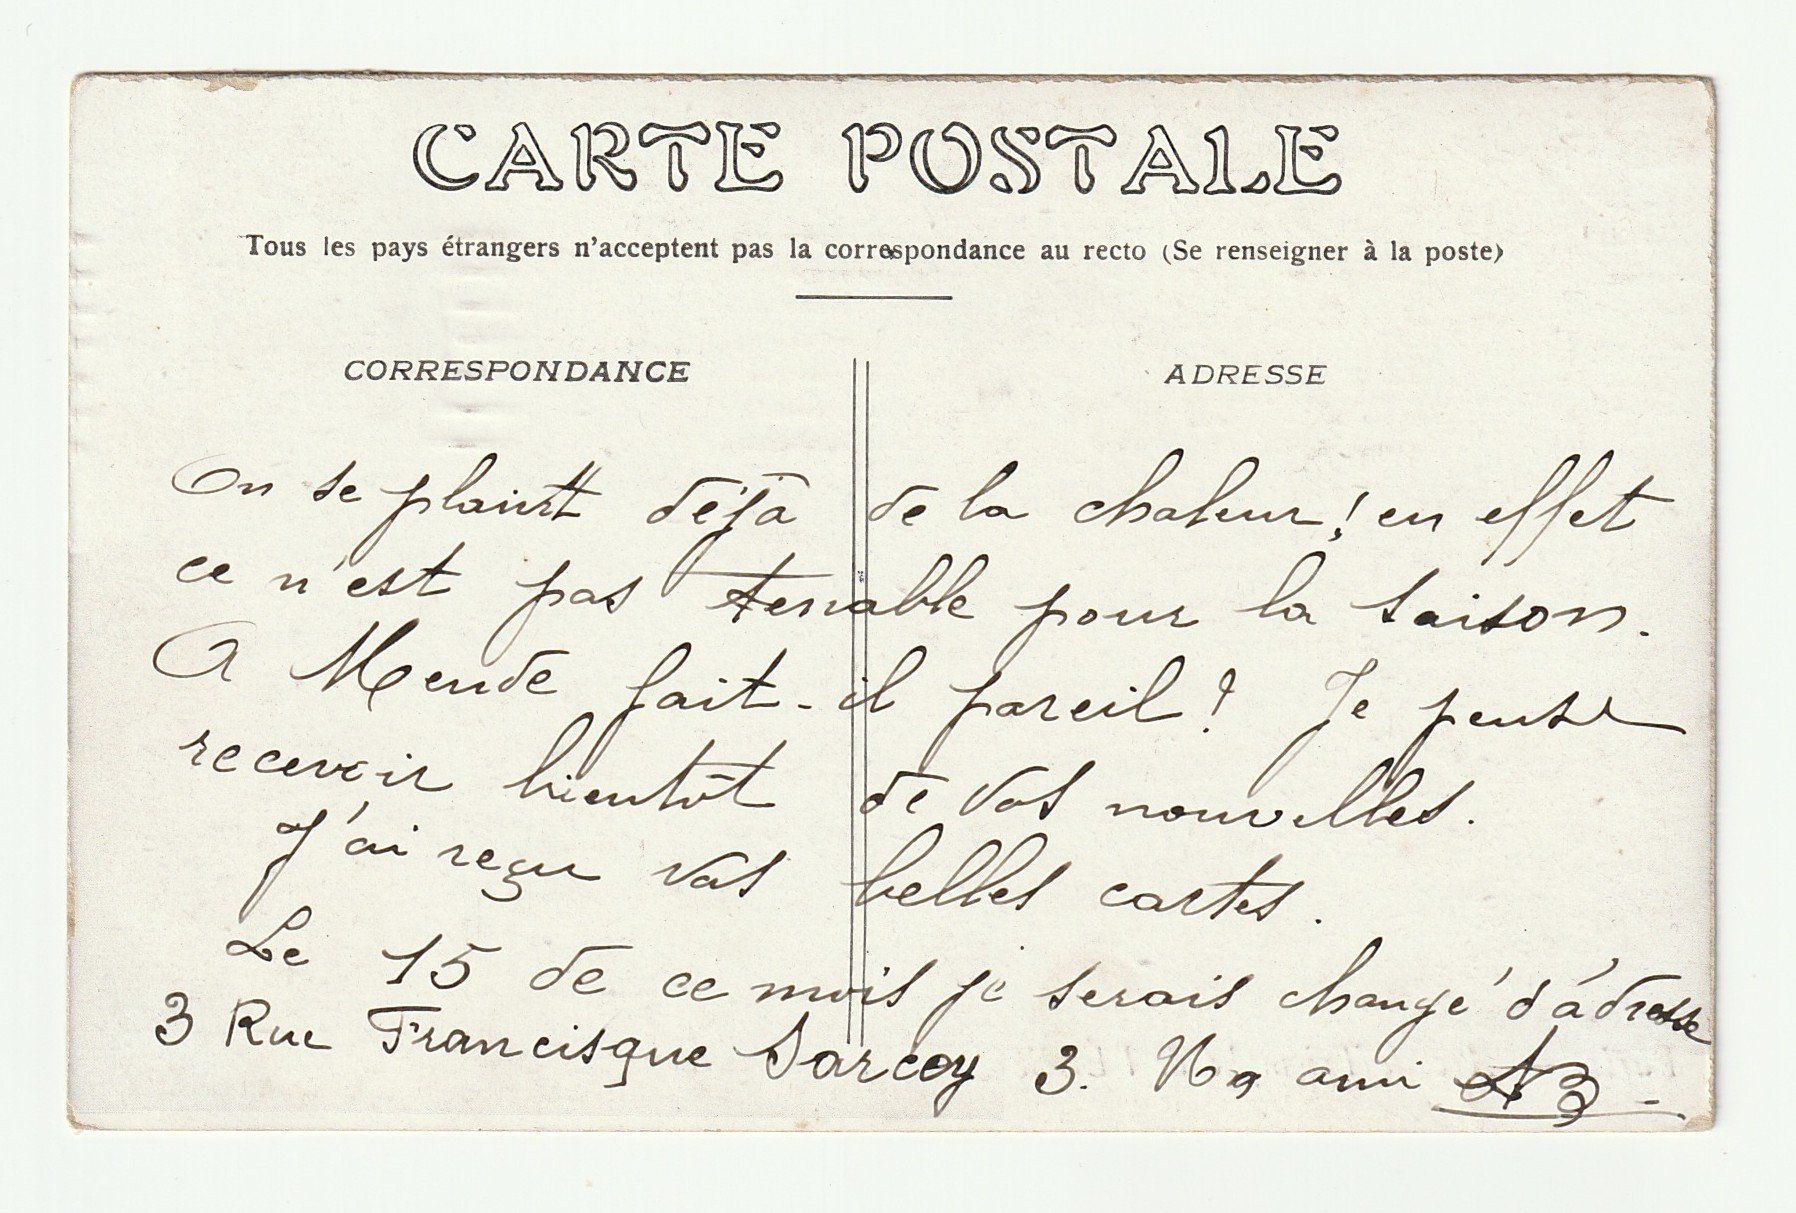 CARTE POSTALE
Tous les pays étrangers n'acceptent pas la correspondance au recto (Se renseigner à la poste)
CORRESPONDANCE
ADRESSE
On se plaint déjà de la chaleur! en effet
ce n'est pas tenable pour la saison.
A Mende fait-il pareil? Je pense
recevoir bientôt de vos nouvelles.
J'ai reçu vos belles cartes.
Le 15 de ce mois je serais changé d'adresse
3 Rue Francisque Sarcey 3. ami